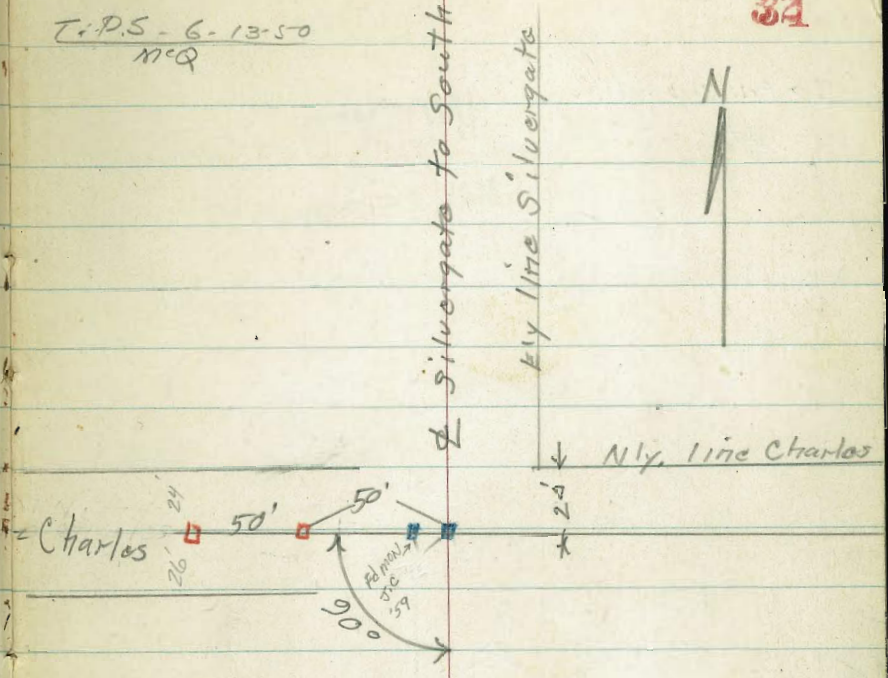 T.P.S - 6-13-50
McQ
34
N
℄ Silvergate to South
E'ly line Silvergate
N'ly. line Charles
24'
50'
50'
Charles
26'
Fd mon
J.C
'59
90°